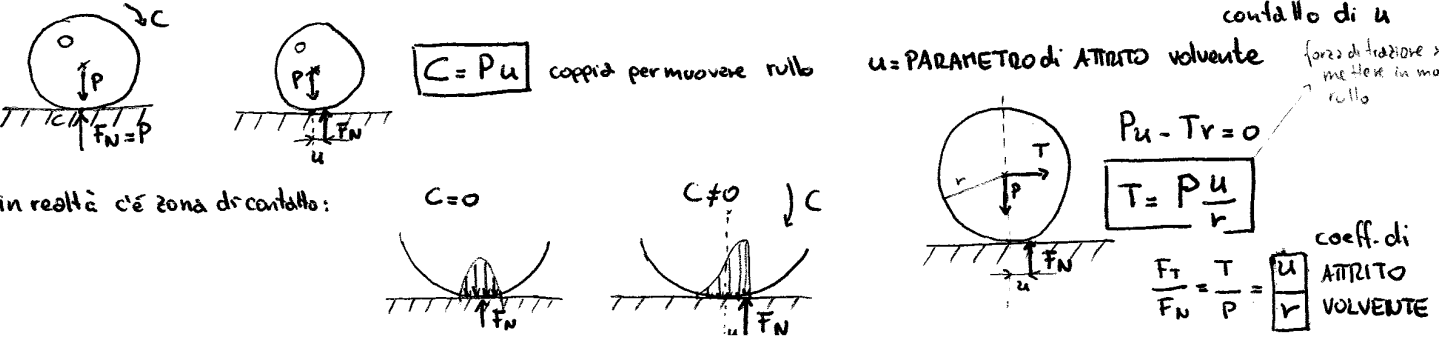 C
O
P
C
F_N = P
O
P
F_N
u
C = Pu coppia per muovere rullo
contatto di u
u = PARAMETRO di ATTRITO volvente
forza di trazione
mettere in mo
rullo
in realtà c'é zona di contatto:
C = 0
F_N
C ≠ 0
C
u
F_N
T
r
P
F_N
u
Pu - Tr = 0
T = P u/r
F_T/F_N = T/P = u/r
coeff. di
ATTRITO
VOLVENTE